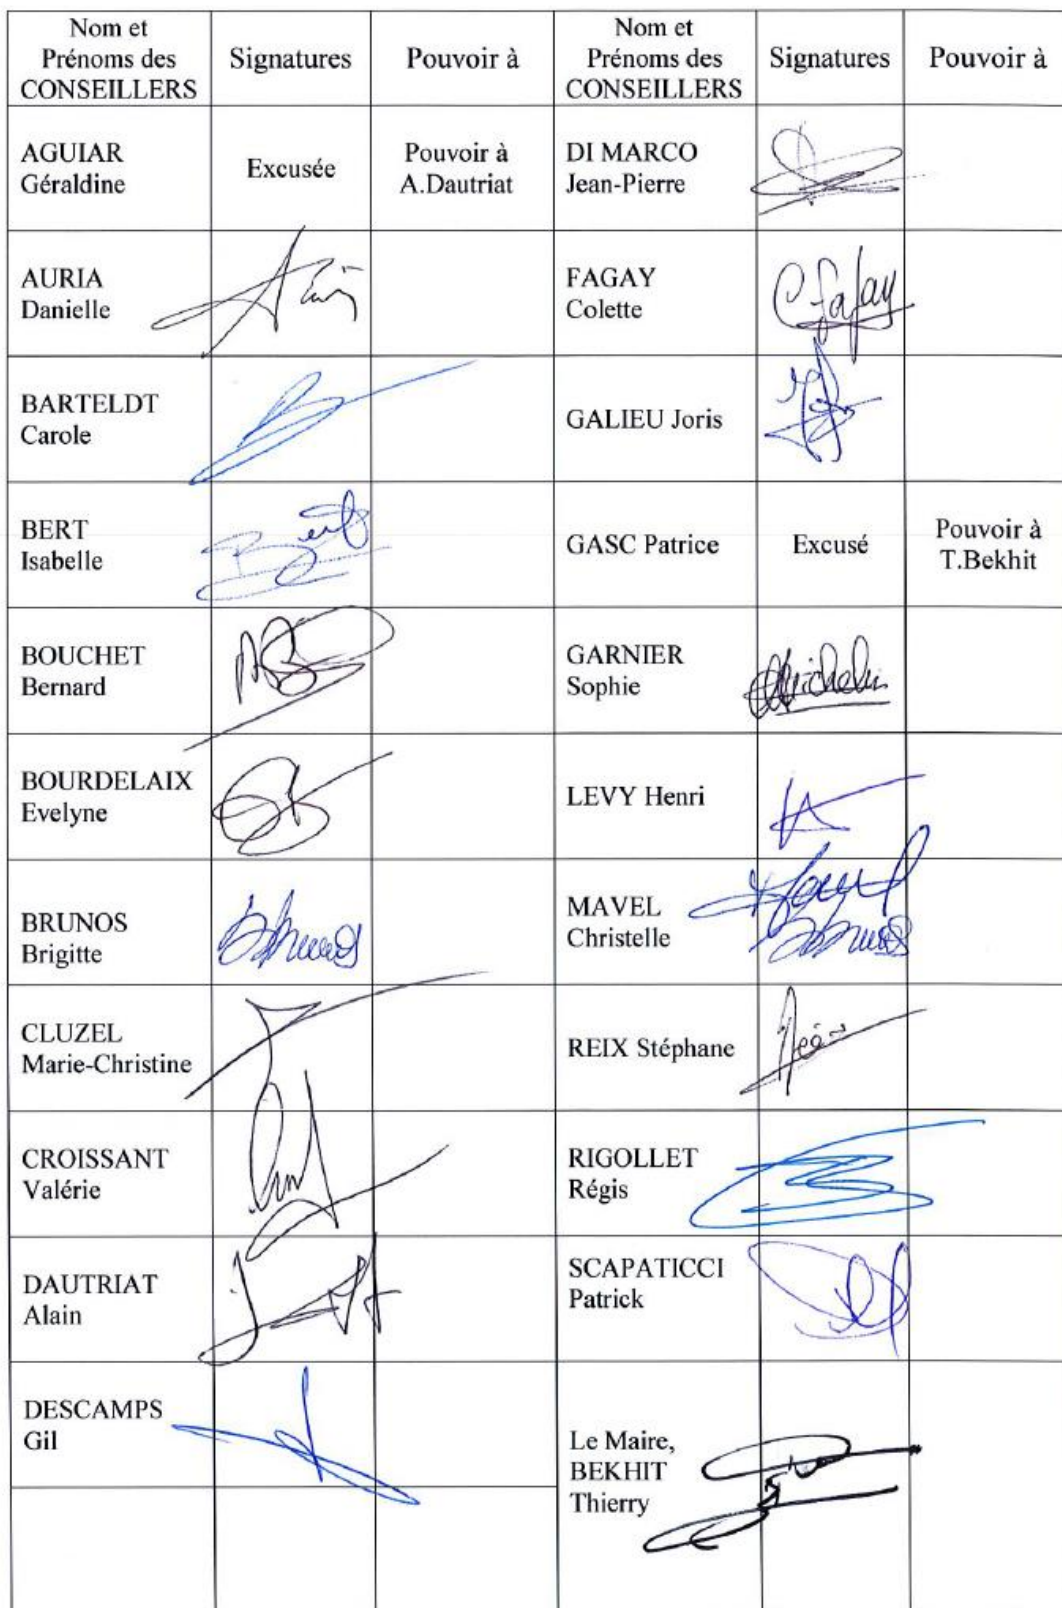 Nom et
Prénoms des
CONSEILLERS
Signatures
Pouvoir à
Nom et
Prénoms des
CONSEILLERS
Signatures
Pouvoir à
AGUIAR
Géraldine
Excusée
Pouvoir à
A.Dautriat
DI MARCO
Jean-Pierre
AURIA
Danielle
FAGAY
Colette
C. Fagay
BARTELDT
Carole
GALIEU Joris
BERT
Isabelle
Bert
GASC Patrice
Excusé
Pouvoir à
T.Bekhit
BOUCHET
Bernard
GARNIER
Sophie
BOURDELAIX
Evelyne
LEVY Henri
BRUNOS
Brigitte
BBrunos
MAVEL
Christelle
BBrunos
CLUZEL
Marie-Christine
REIX Stéphane
CROISSANT
Valérie
RIGOLLET
Régis
DAUTRIAT
Alain
SCAPATICCI
Patrick
DESCAMPS
Gil
Le Maire,
BEKHIT
Thierry